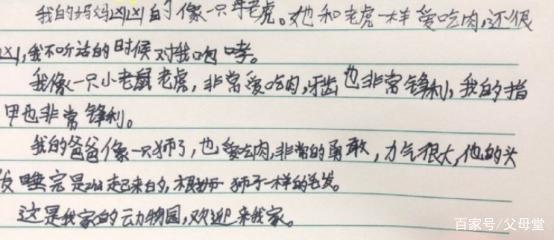 我的妈妈凶凶的像一只母老虎。她和老虎一样爱吃肉,还很
凶,我不听话的时候对我咆哮。
我像一只小老虎,非常爱吃肉,牙齿也非常锋利,我的指
甲也非常锋利。
我的爸爸像一只狮子,也爱吃肉,非常的勇敢,力气很大,他的头
发睡完是立起来的,根狮子一样的毛发。
这是我家的动物园,欢迎来我家。
百家号/父母堂